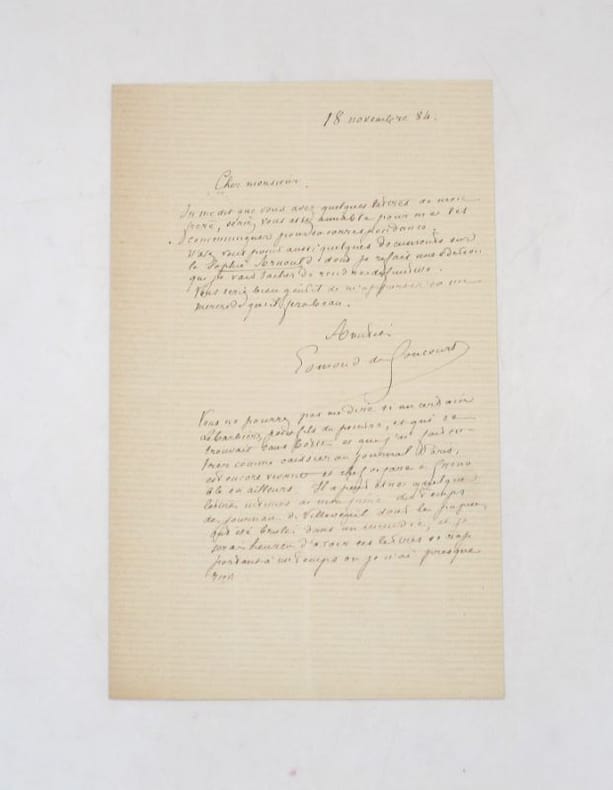 18 novembre 84.
Cher monsieur
On me dit que vous avez quelques lettres de mon
frère, seriez vous assez aimable pour me les
communiquer pour sa correspondance.
vous aussi quelques documents sur
la Sophie Arnould dont je refais une édition
que je vais tacher de rendre définitive.
Vous seriez bien gentil de m'apporter ça un
mercredi qu'il fera beau.
Amitiés
Edmond de Goncourt
Vous ne pourrez pas me dire si un certain
fils du peintre, et qui se
trouvait sans et que j'ai fait en-
trer comme caissier au journal Paris,
est encore vivant et
ou ailleurs. Il a peut être quelques
lettres intimes de mon frère du temps
du journal de Villedeuil dont les papiers
ont été brulés dans un incendie, et je
serais heureux d'avoir des lettres se rap-
portant à un temps où je n'ai presque
rien